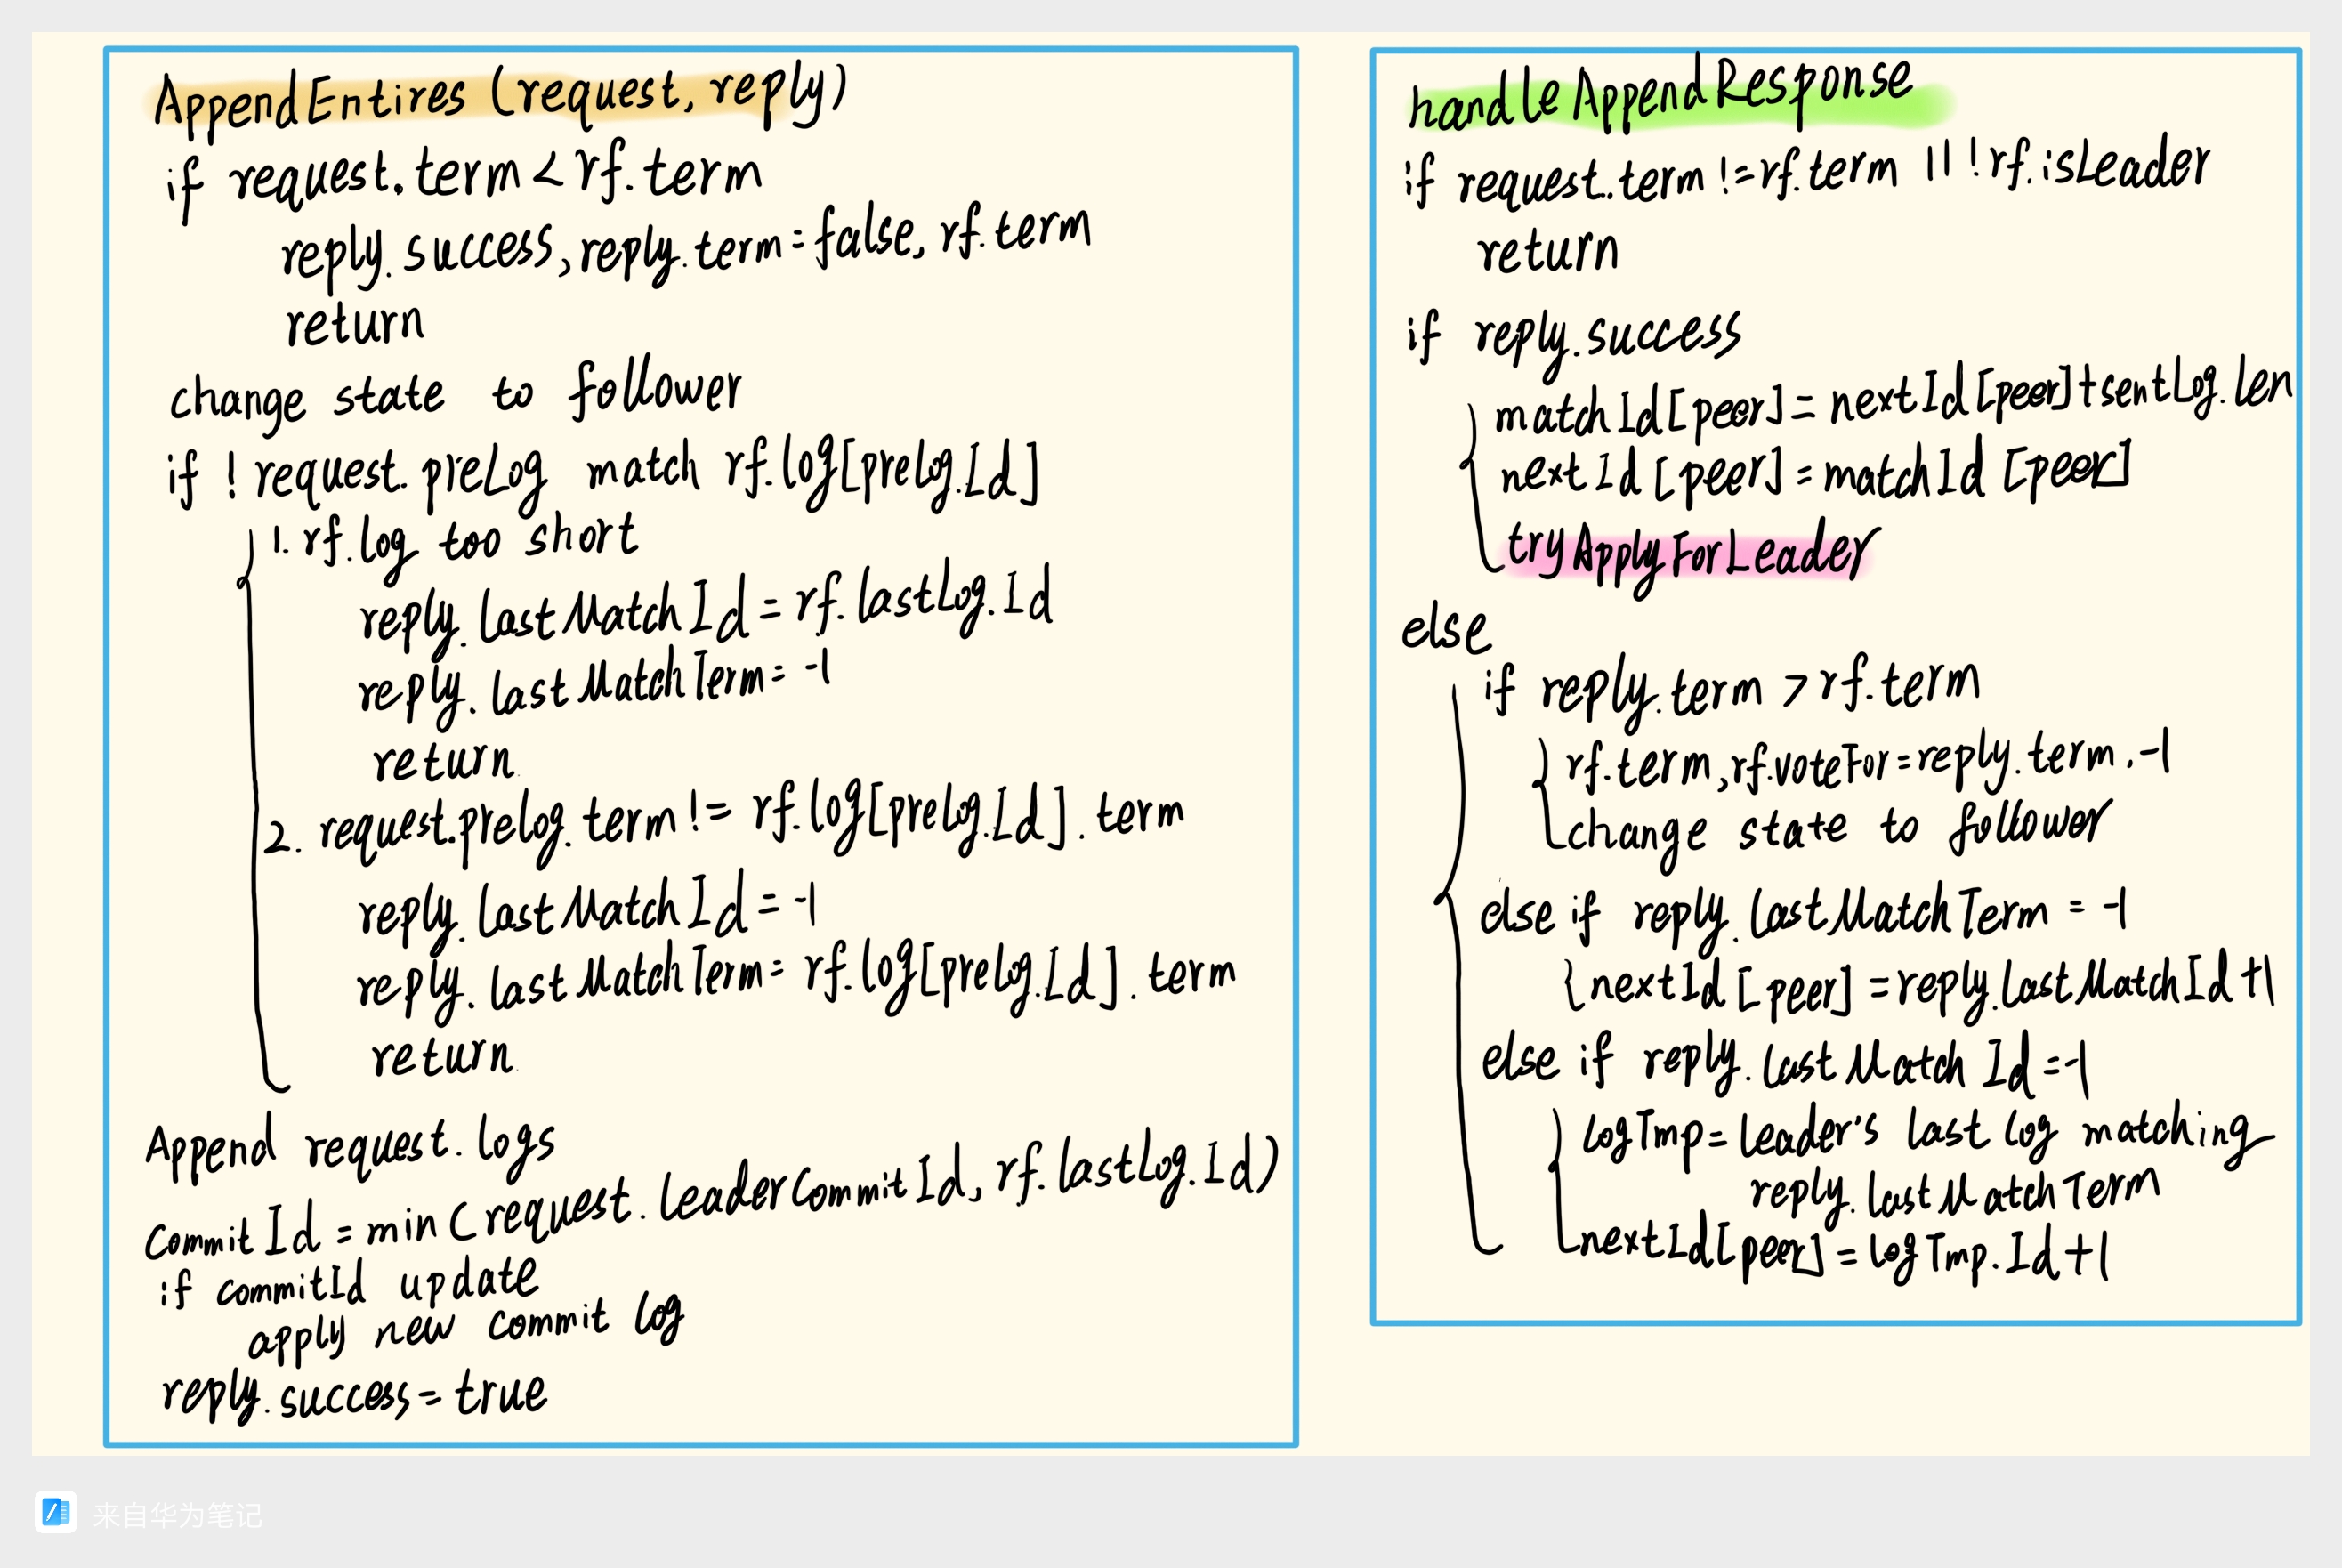 AppendEntires (request, reply)
if request.term < rf.term
reply.success, reply.term = false, rf.term
return
change state to follower
if ! request.preLog match rf.log[prelog.Id]
1. rf.log too short
reply.lastMatchId = rf.lastLog.Id
reply.lastMatchTerm = -1
return
2. request.prelog.term != rf.log[prelog.Id].term
reply.lastMatchId = -1
reply.lastMatchTerm = rf.log[prelog.Id].term
return
Append request.logs
commitId = min(request.leaderCommitId, rf.lastLog.Id)
if commitId update
apply new commit log
reply.success = true
handleAppendResponse
if request.term != rf.term || !rf.isLeader
return
if reply.success
matchId[peer] = nextId[peer] + sentLog.len
nextId[peer] = matchId[peer]
tryApplyForLeader
else
if reply.term > rf.term
rf.term, rf.voteFor = reply.term, -1
change state to follower
else if reply.lastMatchTerm = -1
nextId[peer] = reply.lastMatchId +1
else if reply.lastMatchId = -1
logTmp = leader's last log matching
reply.lastMatchTerm
nextId[peer] = logTmp.Id+1
来自华为笔记